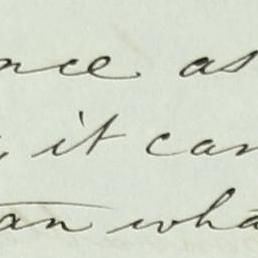 nce as
, it can
an wha